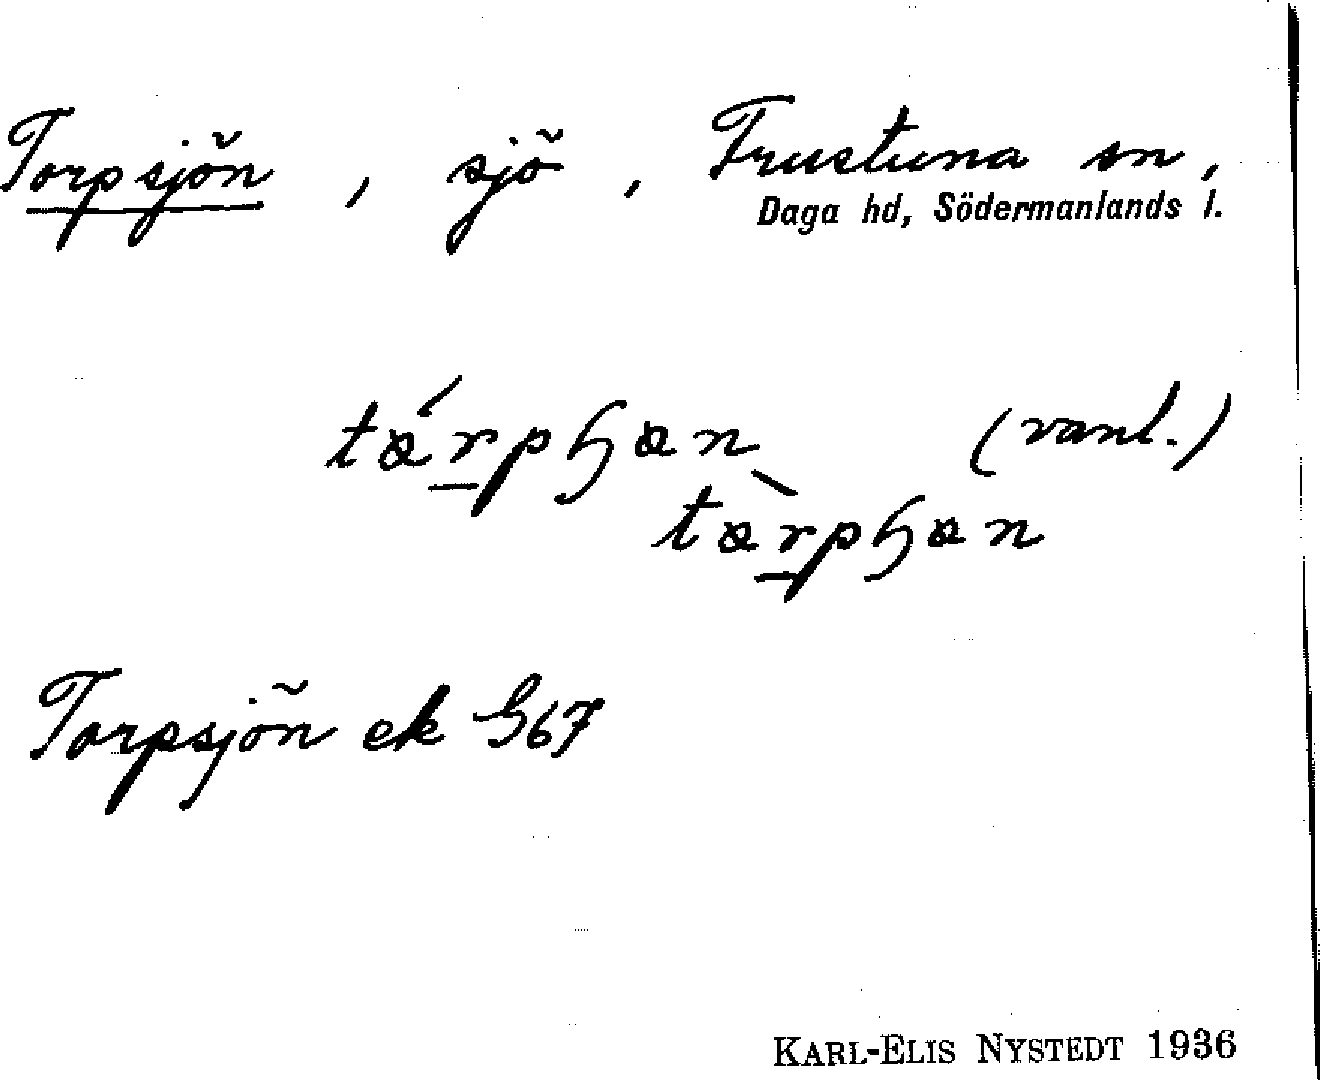 Torpsjön, sjö, Frustuna sn,
Daga hd, Södermanlands l.
(vanl.)
Torpsjön ek G67
KARL-ELIS NYSTEDT 1936